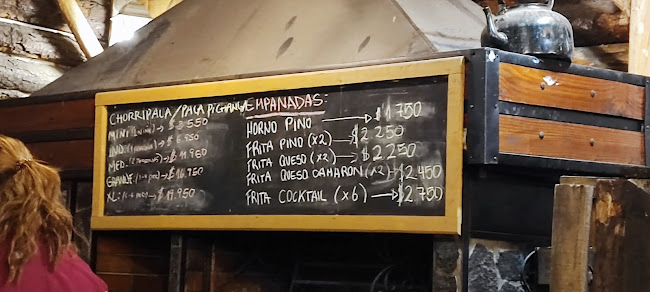 CHORRIPALA/PALA PICHANGA
MINI → $ 8.550
IND. → $
MED. → $ 11.950
GRANDE → $ 16.750
XL: → $ 19.950
EMPANADAS:
HORNO PINO → $ 1.750
FRITA PINO (x2) → $2.250
FRITA QUESO (x2) → $ 2.250
FRITA QUESO CAMARON (x2) → $2.450
FRITA COCKTAIL (x6) → $2.750